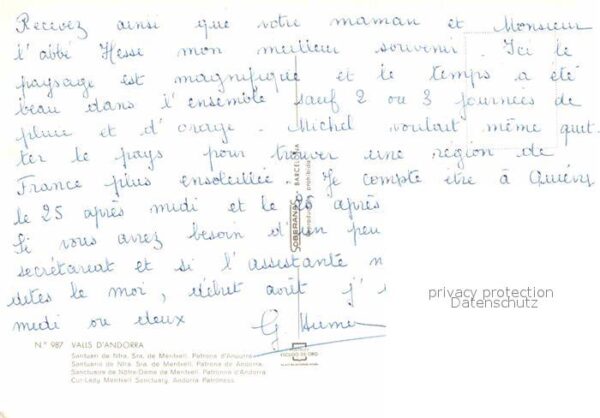 Recevez ainsi que votre maman et Monsieur
l'abbé Hesse mon meilleur souvenir. Ici le
paysage est magnifique et le temps a été
beau dans l'ensemble sauf 2 ou 3 journées de
pluie et d'orage. Michel voulait même quit
ter le pays pour trouver une région de
France plus ensoleillée. Je compte être à
le 25 après midi et le 26 après
Si vous avez besoin d'un peu
secrétariat et si l'assistante
dites le moi, début août j'
midi ou deux
G.
privacy protection
Datenschutz
N.º 987 VALLS D'ANDORRA
Santuari de Ntra. Sra. de Meritxell. Patrona d'Andorra
Santuario de Ntra. Sra. de Meritxell. Patrona de Andorra
Sanctuaire de Nôtre-Dame de Meritxell. Patronne d'Andorra
Our-Lady Meritxell Sanctuary. Andorra Patroness
SOBERANAS - BARCELONA
Reproducción prohibida
ESCUDO DE ORO